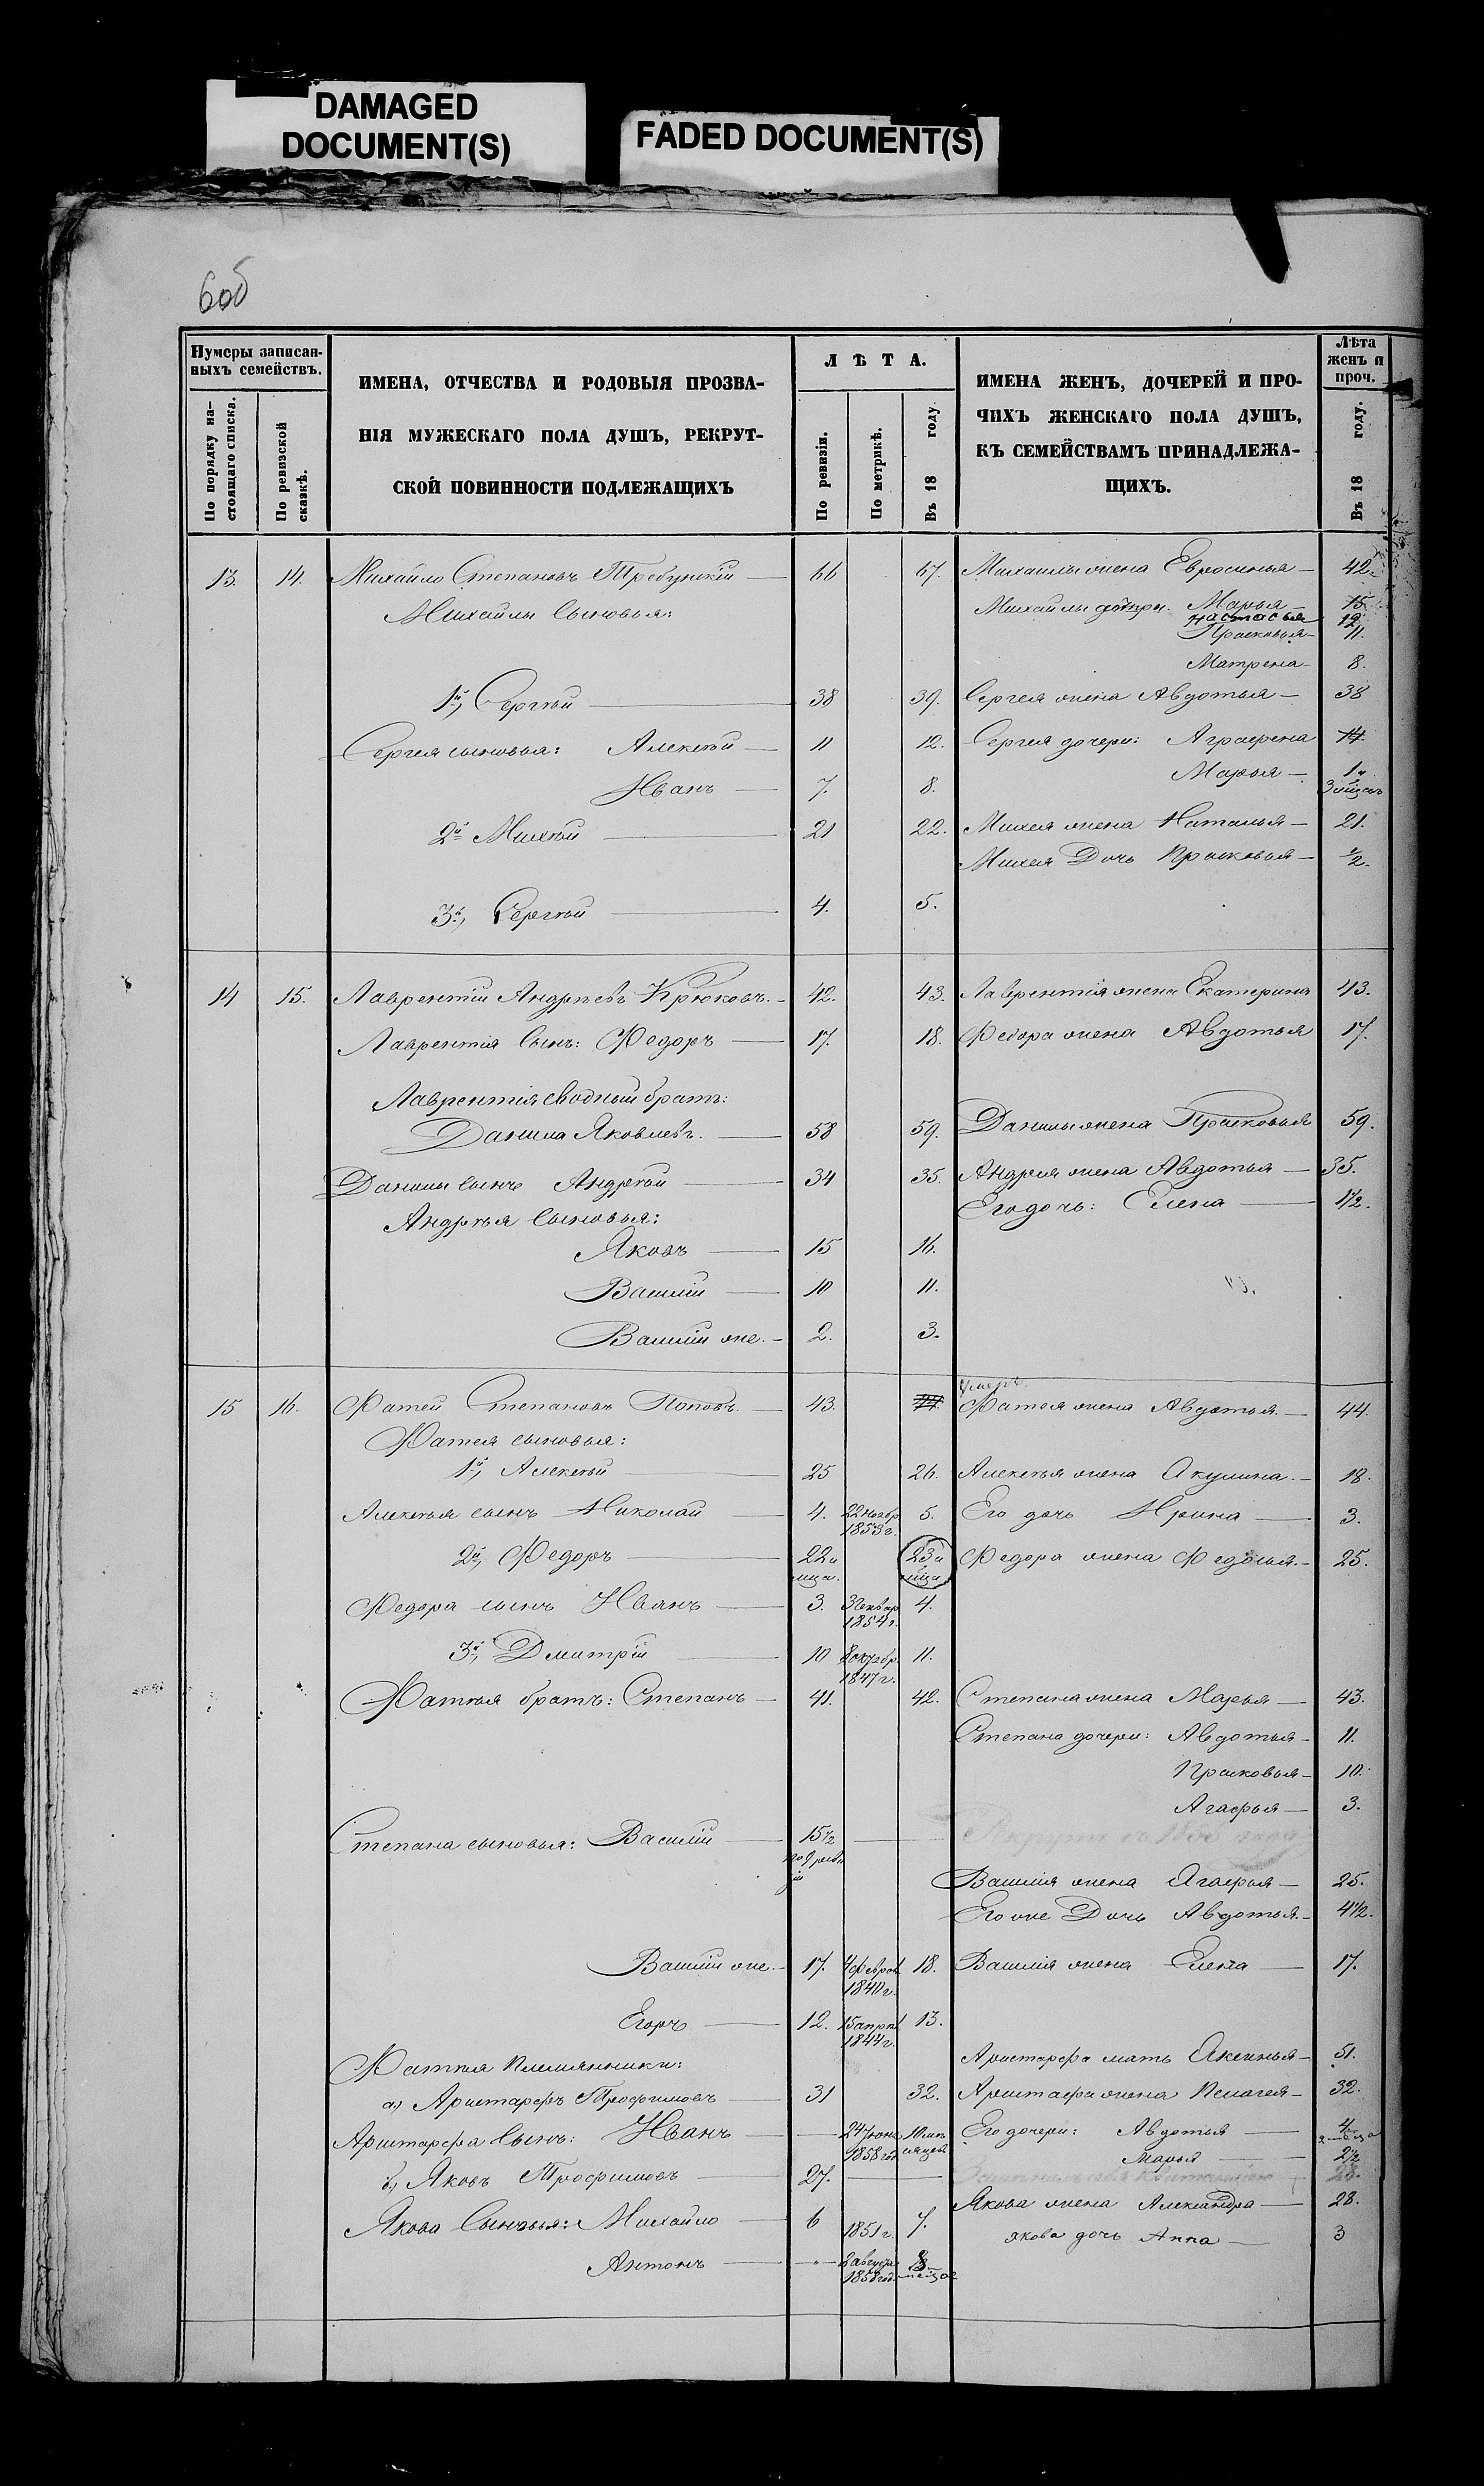 DAMAGED
DOCUMENT(S)
FADED DOCUMENT(S)
6об
Нумеры записан-
ныхъ семействъ.
По порядку на-
стоящаго списка.
По ревизской
сказкѣ.
ИМЕНА, ОТЧЕСТВА И РОДОВЫЯ ПРОЗВА-
НІЯ МУЖЕСКАГО ПОЛА ДУШЪ, РЕКРУТ-
СКОЙ ПОВИННОСТИ ПОДЛЕЖАЩИХЪ
Л Ѣ Т А.
По ревизіи.
По метрикѣ.
Въ 18 году.
ИМЕНА ЖЕНЪ, ДОЧЕРЕЙ И ПРО-
ЧИХЪ ЖЕНСКАГО ПОЛА ДУШЪ,
КЪ СЕМЕЙСТВАМЪ ПРИНАДЛЕЖА-
ЩИХЪ.
Лѣта
женъ и
проч.
Въ 18 году.
13. 14. Михайло Степановъ Требунскій 66 67. Михайлы жена Евросинья 42.
Михайлы сыновья: Михайлы дочери: Марья 15
Настасья 12
Прасковья 11.
Матрена 8.
1й, Сергѣй 38 39. Сергея жена Авдотья 38
Сергея сыновья: Алексѣй 11 12. Сергея дочери: Аграфена 14.
Иванъ 7. 8. Марья 1 и
3 мѣсяц
2й Михѣй 21 22. Михея жена Наталья 21.
Михея Дочь Прасковья 1/2.
3й, Сергѣй 4. 5.
14 15. Лаврентій Андреевъ Крюковъ. 42. 43. Лаврентія жена Екатерина 43.
Лаврентія Сынъ: Федоръ 17. 18. Федора жена Авдотья 17.
Лаврентія сводный братъ:
Данила Яковлевъ. 58 59. Данилы жена Прасковья 59.
Данилы сынъ Андрѣй 34 35. Андрея жена Авдотья 35.
Андрѣя Сыновья: Его дочь: Елена 1/2.
Яковъ 15 16.
Василій 10 11.
Василій же. 2. 3.
умеръ.
15 16. Фатей Степановъ Поповъ 43. 44. Фатея жена Авдотья. 44.
Фатея сыновья:
1й, Алексѣй 25 26. Алексѣя жена Акулина. 18.
Алексѣя сынъ Николай 4. 22 ноябр 5. Его дочь Ирина 3.
1853 г.
2й, Федоръ 22 и 23 и Федора жена Федосья. 25.
мца. мца
Федора сынъ Иванъ 3. 3 Генвар 4.
1854 г.
3й, Дмитрій 10 8 октябр. 11.
1847 г.
Фатѣя братъ: Степанъ 41. 42. Степана жена Марья 43.
Степана дочери: Авдотья 11.
Прасковья 10.
Агафья 3.
Степана сыновья: Василій 15 1/2
по 9 реви
зіи
Василія жена Агафья 25.
Его же Дочь Авдотья. 4 1/2.
Василій же. 17. 4 феврал 18. Василія жена Елена 17.
1840 г.
Егоръ 12. 15 апрѣл 13.
1844 г.
Фатѣя племянники: Аристарфа мать Аксинья 51.
а) Аристарфъ Трофимовъ 31 32. Аристарфа жена Пелагея 32.
Аристарфа Сынъ: Иванъ 24 Іюня 10 мѣ Его дочери: Авдотья 4
1858 год сяцев
Марья 2 1/2
б) Яковъ Трофимовъ 27.
Якова жена Александра 28.
Якова Сыновья: Михайло 6 1851 г. 7. якова дочь Анна 3
Антонъ 8 августа 8
1858 год. месяцов